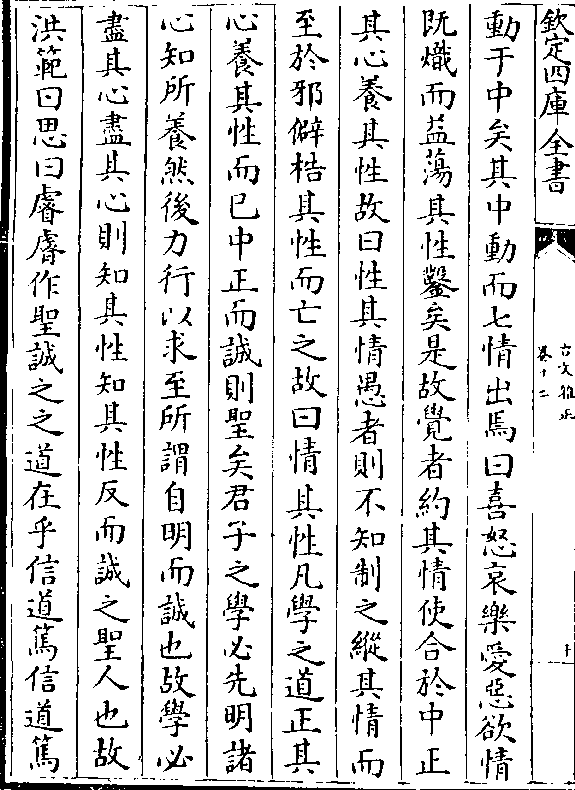 欽定四庫全書
古文雅正
卷十二
動于中矣其中動而七情出焉曰喜怒哀樂愛惡欲情
既熾而益蕩其性鑿矣是故覺者約其情使合於中正
其心養其性故曰性其情愚者則不知制之縱其情而
至於邪僻梏其性而亡之故曰情其性凡學之道正其
心養其性而已中正而誠則聖矣君子之學必先明諸
心知所養然後力行以求至所謂自明而誠也故學必
盡其心盡其心則知其性知其性反而誠之聖人也故
洪範曰思曰睿睿作聖誠之之道在乎信道篤信道篤